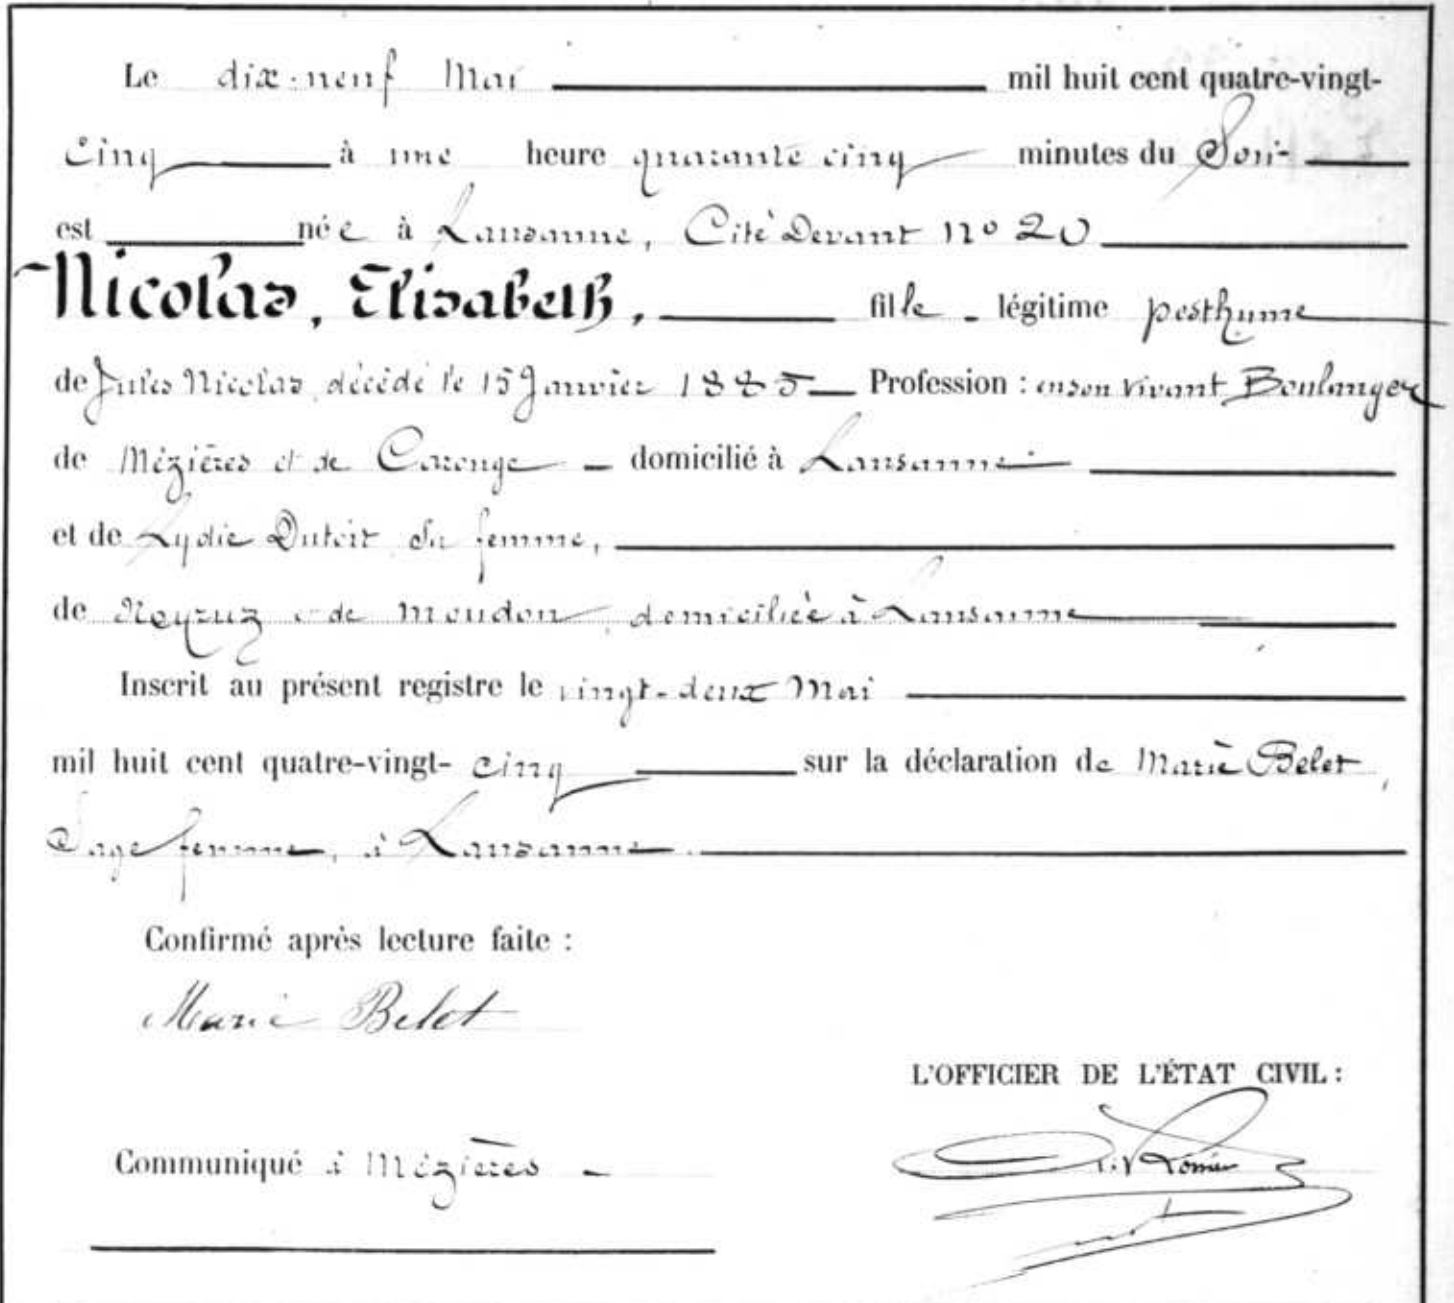 Le dix-neuf Mai mil huit cent quatre-vingt-
cinq à une heure quarante cinq minutes du Soir
est née à Lausanne, Cité Devant n° 20
Nicolas, Elisabeth, fille légitime posthume
de Jules Nicolas, décédé le 15 Janvier 1885 Profession : en son vivant Boulanger
de Mézières et de Carouge domicilié à Lausanne
et de Lydie Dutoit sa femme,
de Neyruz et de Moudon, domiciliée à Lausanne
Inscrit au présent registre le vingt-deux Mai
mil huit cent quatre-vingt- cinq sur la déclaration de Marie Belet,
Sage femme, à Lausanne.
Confirmé après lecture faite :
Marie Belet
L'OFFICIER DE L'ÉTAT CIVIL :
Communiqué à Mézières